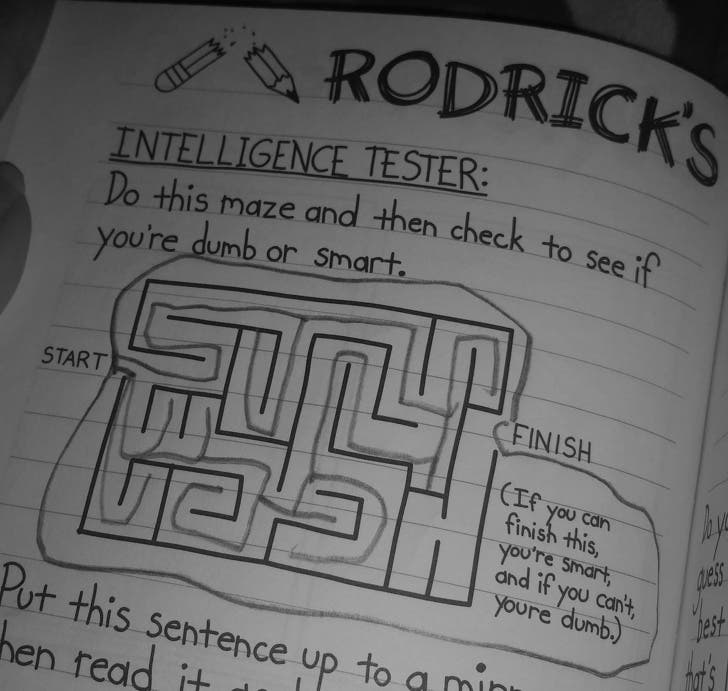 RODRICK'S
INTELLIGENCE TESTER:
Do this maze and then check to see if
you're dumb or smart.
START
FINISH
(If you can
finish this,
you're smart,
and if you can't,
you're dumb.)
Put this sentence up to a
then read it
Do yo
guess
best
that's